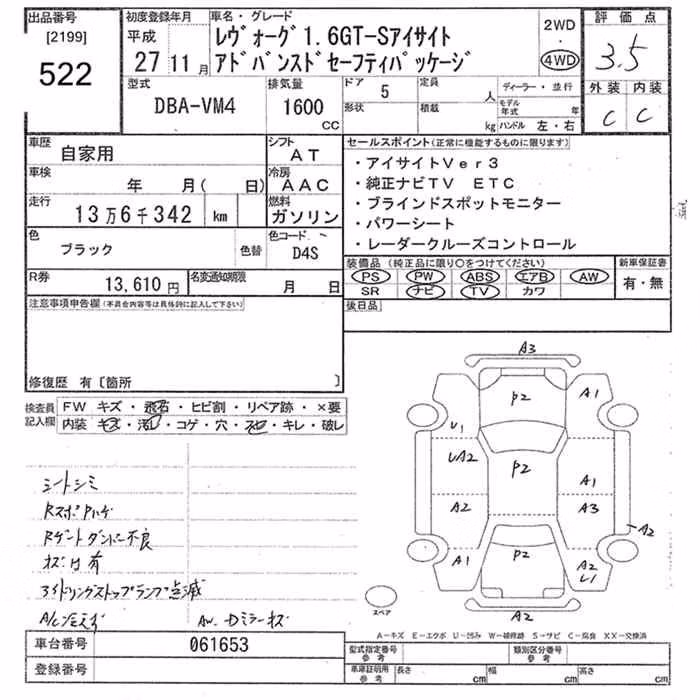 出品番号
[2199]
522
初度登録年月
平成
27 11 月
車名・グレード
レヴォーグ1.6GT-Sアイサイト
アドバンスドセーフティパッケージ
2WD
・
4WD
評価点
3.5
外装 内装
C C
型式
DBA-VM4
排気量
1600
CC
ドア 5
形状
定員 人
積載 kg
ディーラー・並行
モデル年式 年
ハンドル 左・右
車歴
自家用
シフト
AT
車検
年 月( 日)
冷房
AAC
走行
13万6千342 km
燃料
ガソリン
色
ブラック
色替
色コード
D4S
R券
13,610 円
名変通知期限
月 日
セールスポイント(正常に機能するものに限ります)
・アイサイトVer3
・純正ナビTV ETC
・ブラインドスポットモニター
・パワーシート
・レーダークルーズコントロール
装備品(純正品に限り○をつけてください)
PS PW ABS エアB AW
SR ナビ TV カワ
新車保証書
有・無
後日品
注意事項申告欄(本具合内容等は具体的に記入して下さい)
修復歴 有〔箇所 〕
検査員
記入欄
FW キズ・飛石・ヒビ割・リペア跡・×要
内装 キズ・汚レ・コゲ・穴・スレ・キレ・破レ
シートシミ
Rゲートダンパー不良
オズレ有
アイドリングストップランプ点滅
A/C冷えず
AW.Dミラーキズ
A3
P2
A1
U1
UA2
P2
A1
A2
A3
A2
A1
P2
A2
U1
A2
スペア
A−キズ E−エクボ U−凹み W−補修跡 S−サビ C−腐食 XX−交換済
車台番号
061653
登録番号
型式指定番号
参考
類別区分番号
参考
車庫証明用
参考
長さ cm
幅 cm
高さ cm